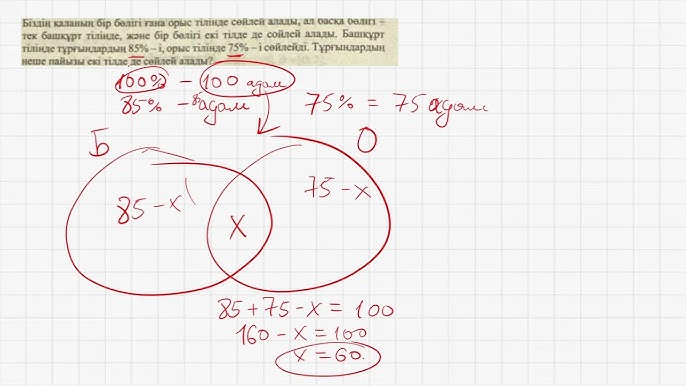 Біздің қаланың бір бөлігі ғана орыс тілінде сөйлей алады, ал басқа бөлігі –
тек башқұрт тілінде, және бір бөлігі екі тілде де сөйлей алады. Башқұрт
тілінде тұрғындардың 85% – і, орыс тілінде 75% – і сөйлейді. Тұрғындардың
неше пайызы екі тілде де сөйлей алады?
100% – 100 адам
85% – 85адам 75% = 75 адам
Б О
85 – x x 75 – x
85 + 75 – x = 100
160 – x = 100
x = 60.